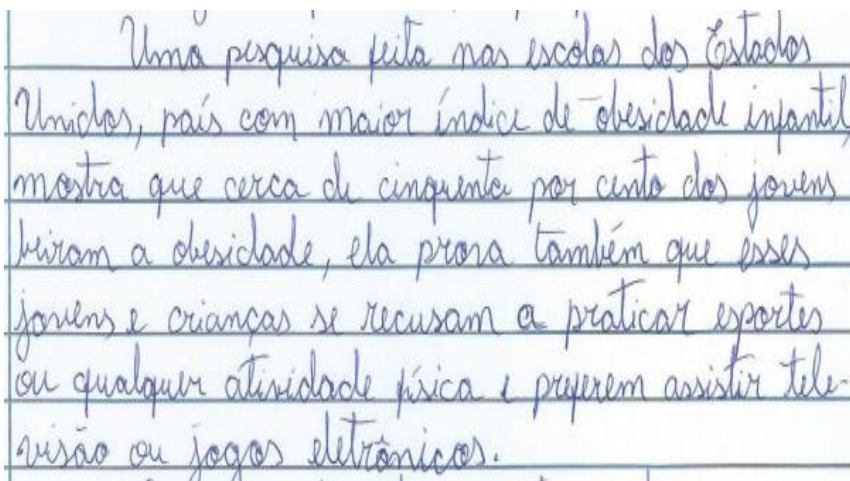 Uma pesquisa feita nas escolas dos Estados
Unidos, país com maior índice de obesidade infantil,
mostra que cerca de cinquenta por cento dos jovens
beiram a obesidade, ela prova também que esses
jovens e crianças se recusam a praticar esportes
ou qualquer atividade física e preferem assistir tele-
visão ou jogos eletrônicos.